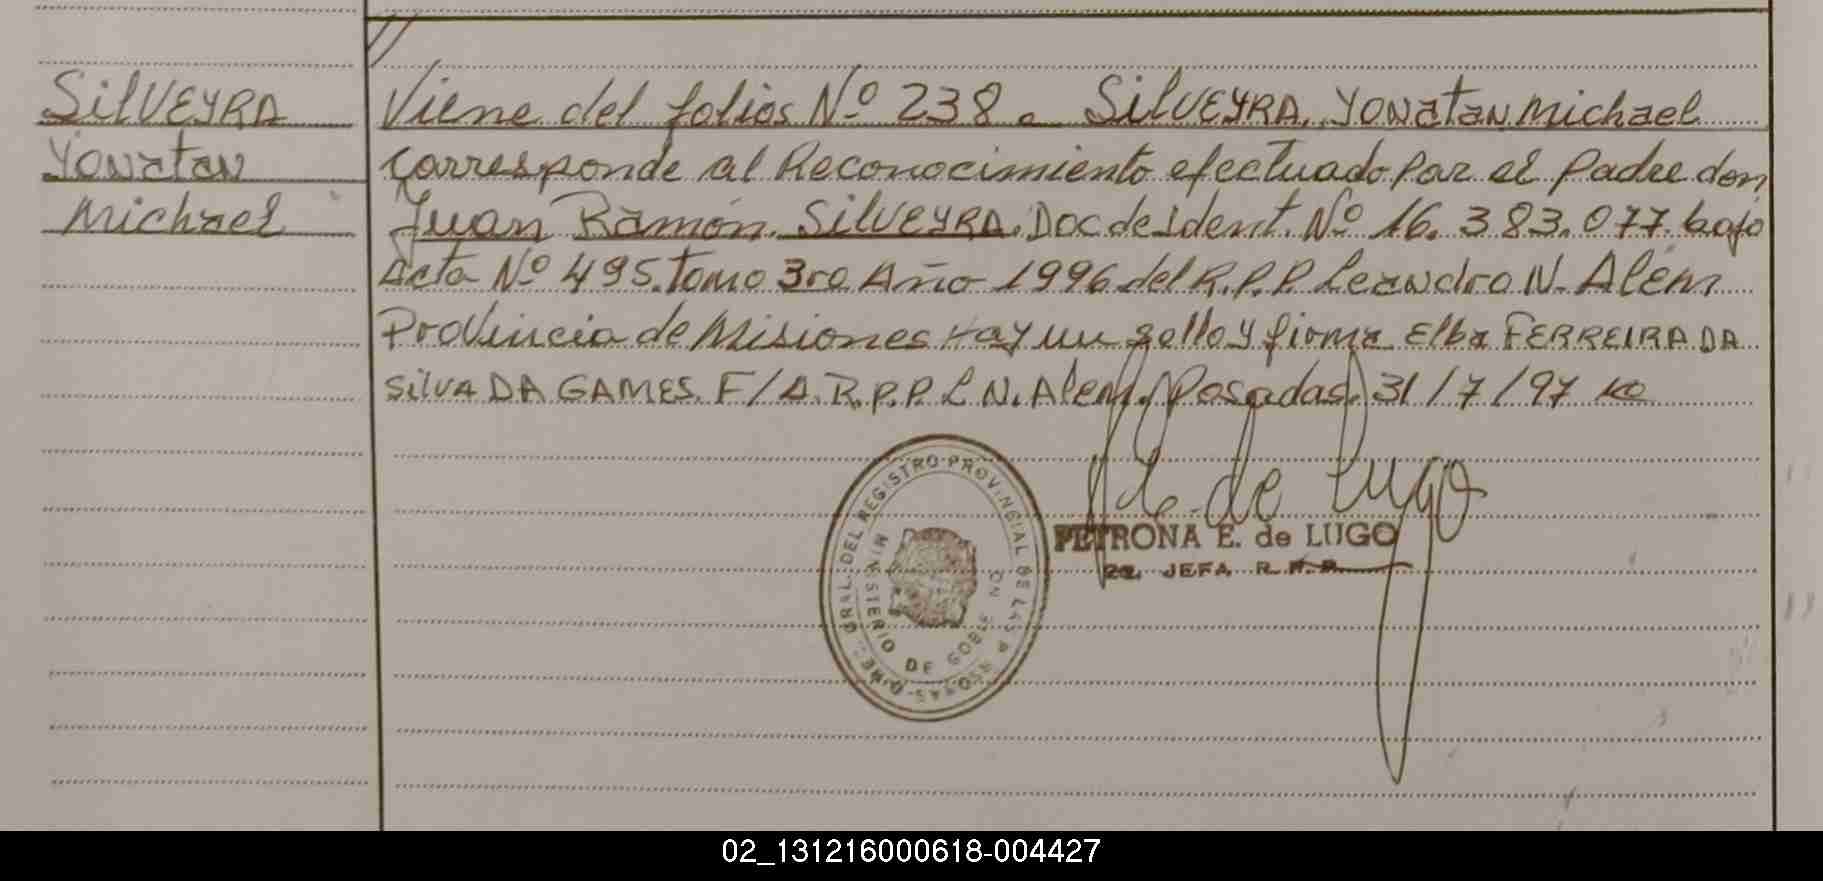 SilVEYRA
Yonatan
Michael
Viene del folios Nº 238. SilVEYRA, Yonatan Michael
Corresponde al Reconocimiento efectuado por el padre don
Juan Ramón SilVEYRA. Doc de Ident. Nº 16.383.077 bajo
Acta Nº 495. tomo 3ro Año 1996 del R.P.P. Leandro N. Além
Provincia de Misiones Hay un sello y firma Elba FERREIRA DA
SilVA DA GAMES. F/A. R.P.P. L N. Alem. Posadas 31/7/97
de Lugo
PETRONA E. de LUGO
JEFA R.P.P.
GRAL. DEL REGISTRO PROVINCIAL DE LAS PERSONAS
MINISTERIO DE GOBIERNO
02_131216000618-004427